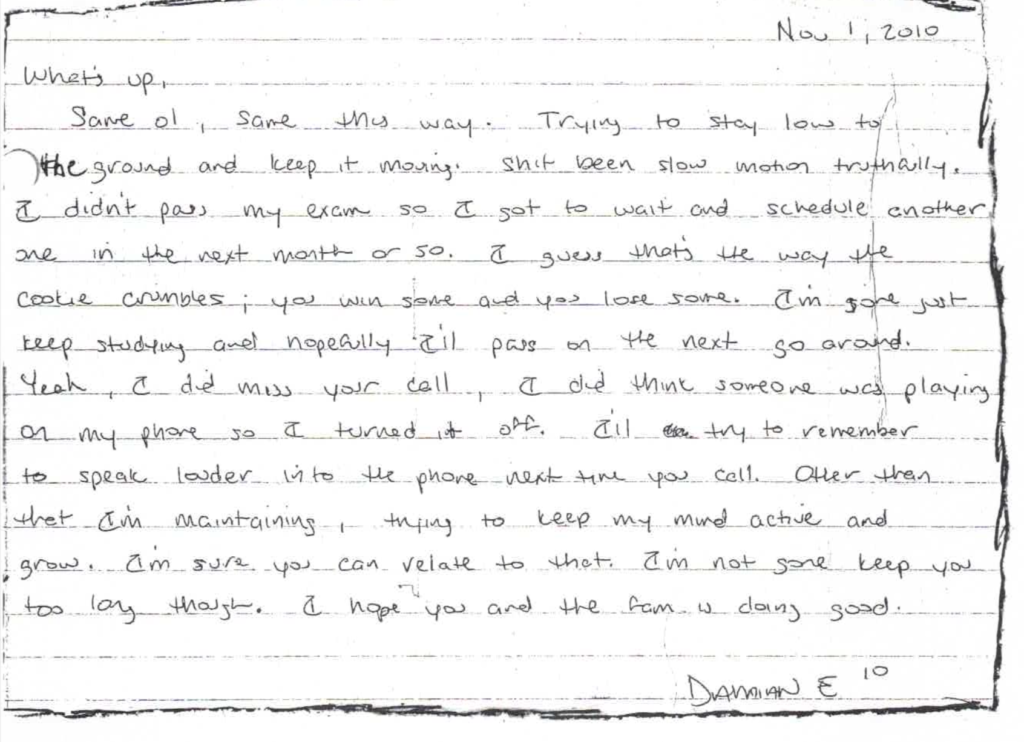 Nov 1, 2010
What's up,
Same ol, same this way. Trying to stay low to
the ground and keep it moving. Shit been slow motion truthfully.
I didn't pass my exam so I got to wait and schedule another
one in the next month or so. I guess that's the way the
cookie crumbles; you win some and you lose some. I'm gone just
keep studying and hopefully I'll pass on the next go around.
Yeah, I did miss your call, I did think someone was playing
on my phone so I turned it off. I'll try to remember
to speak louder into the phone next time you call. Other than
that I'm maintaining, trying to keep my mind active and
grow. I'm sure you can relate to that. I'm not gone keep you
too long though. I hope you and the fam is doing good.
DAMIAN E 10